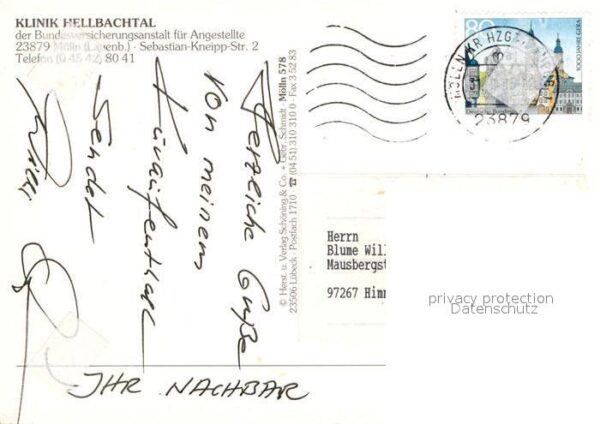 KLINIK HELLBACHTAL
der Bundesversicherungsanstalt für Angestellte
23879 Mölln (Lauenb.) · Sebastian-Kneipp-Str. 2
Telefon (0 45 42) 80 41
Herzliche Grüße
von meinem
Kuraufenthalt
sendet
Willi
IHR NACHBAR
© Herst. u. Verlag Schöning & Co. + Gebr. Schmidt · Mölln 578
23506 Lübeck · Postfach 1710 · ☎ (04 51) 310 310 · Fax 3 52 83
80
1000 JAHRE GERA
MÖLLN, KR HZGT
23879
Herrn
Blume Will
Mausbergst
97267 Himm
privacy protection
Datenschutz